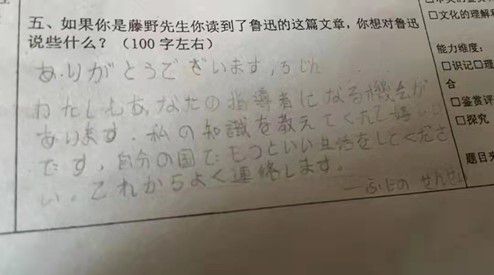 五、如果你是藤野先生你读到了鲁迅的这篇文章，你想对鲁迅
说些什么？（100字左右）
ありがとうございます，ろじん
わたしもあなたの指導者になる機会が
あります．私の知識を教えてくれて嬉い
です，自分の国でもっといい生活をしてくださ
い．これからよく連絡します．
—ふじの せんせい
□文化的理解
能力维度：
□识记□理
合
□鉴赏评
□探究
题目来